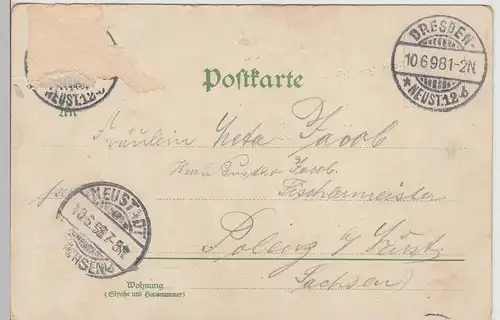 DRESDEN-
10.6.98.1-2N.
*NEUST.12.b
NEUST.12.b
Postkarte
Fräulein Meta Jacob
Herrn Gustav Jacob.
Fischermeister
NEUSTADT
10.6.98.7-8N.
SACHSEN
Polenz b/ Neust.
Sachsen
Wohnung
(Straße und Hausnummer)